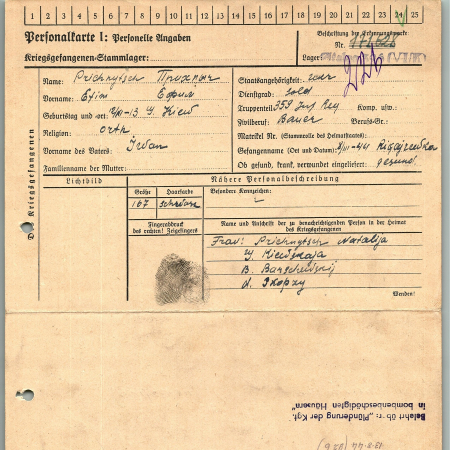 1 2 3 4 5 6 7 8 9 10 11 12 13 14 15 16 17 18 19 20 21 22 23 24 25
Personalkarte I: Personelle Angaben
Kriegsgefangenen-Stammlager:
Beschriftung der Erkennungsmarke
Nr.
Lager:
Des Kriegsgefangenen
Name: Prichnytsch
Vorname: Efim Ефим
Geburtstag und -ort: G. Kiew
Religion: orth
Vorname des Vaters: Iwan
Familienname der Mutter:
Staatsangehörigkeit:
Dienstgrad: sold
Truppenteil: 359 Inf Reg Komp. usw.:
Zivilberuf: Bauer Berufs-Gr.:
Matrikel Nr. (Stammrolle des Heimatstaates):
Gefangennahme (Ort und Datum):
Ob gesund, krank, verwundet eingeliefert:
gesund
Lichtbild
Nähere Personalbeschreibung
Größe Haarfarbe Besondere Kennzeichen:
167 schwarz
Fingerabdruck
des rechten! Zeigefingers
Name und Anschrift der zu benachrichtigenden Person in der Heimat
des Kriegsgefangenen
Frau: Prichnytsch Natalija
G. Kiewskaja
d. Skopzy
Wenden!
Belehrt üb r: „Plünderung der Kgf.
in bombenbeschädigten Häusern"